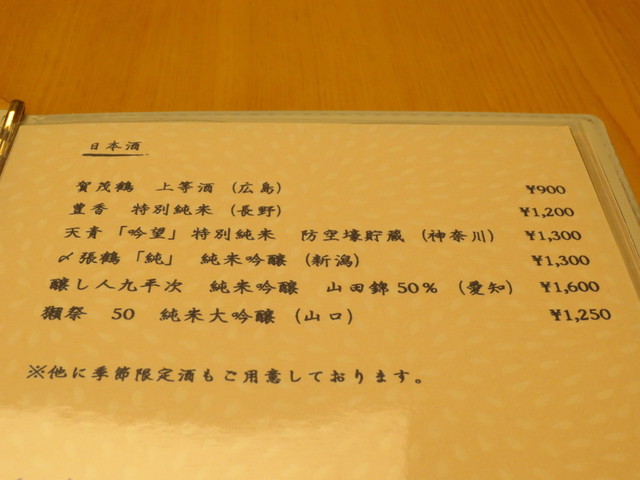 日本酒
賀茂鶴 上等酒 (広島) ¥900
豊香 特別純米 (長野) ¥1,200
天青「吟望」特別純米 防空壕貯蔵 (神奈川) ¥1,300
〆張鶴「純」 純米吟醸 (新潟) ¥1,300
醸し人九平次 純米吟醸 山田錦50% (愛知) ¥1,600
獺祭 50 純米大吟醸 (山口) ¥1,250
※他に季節限定酒もご用意しております。